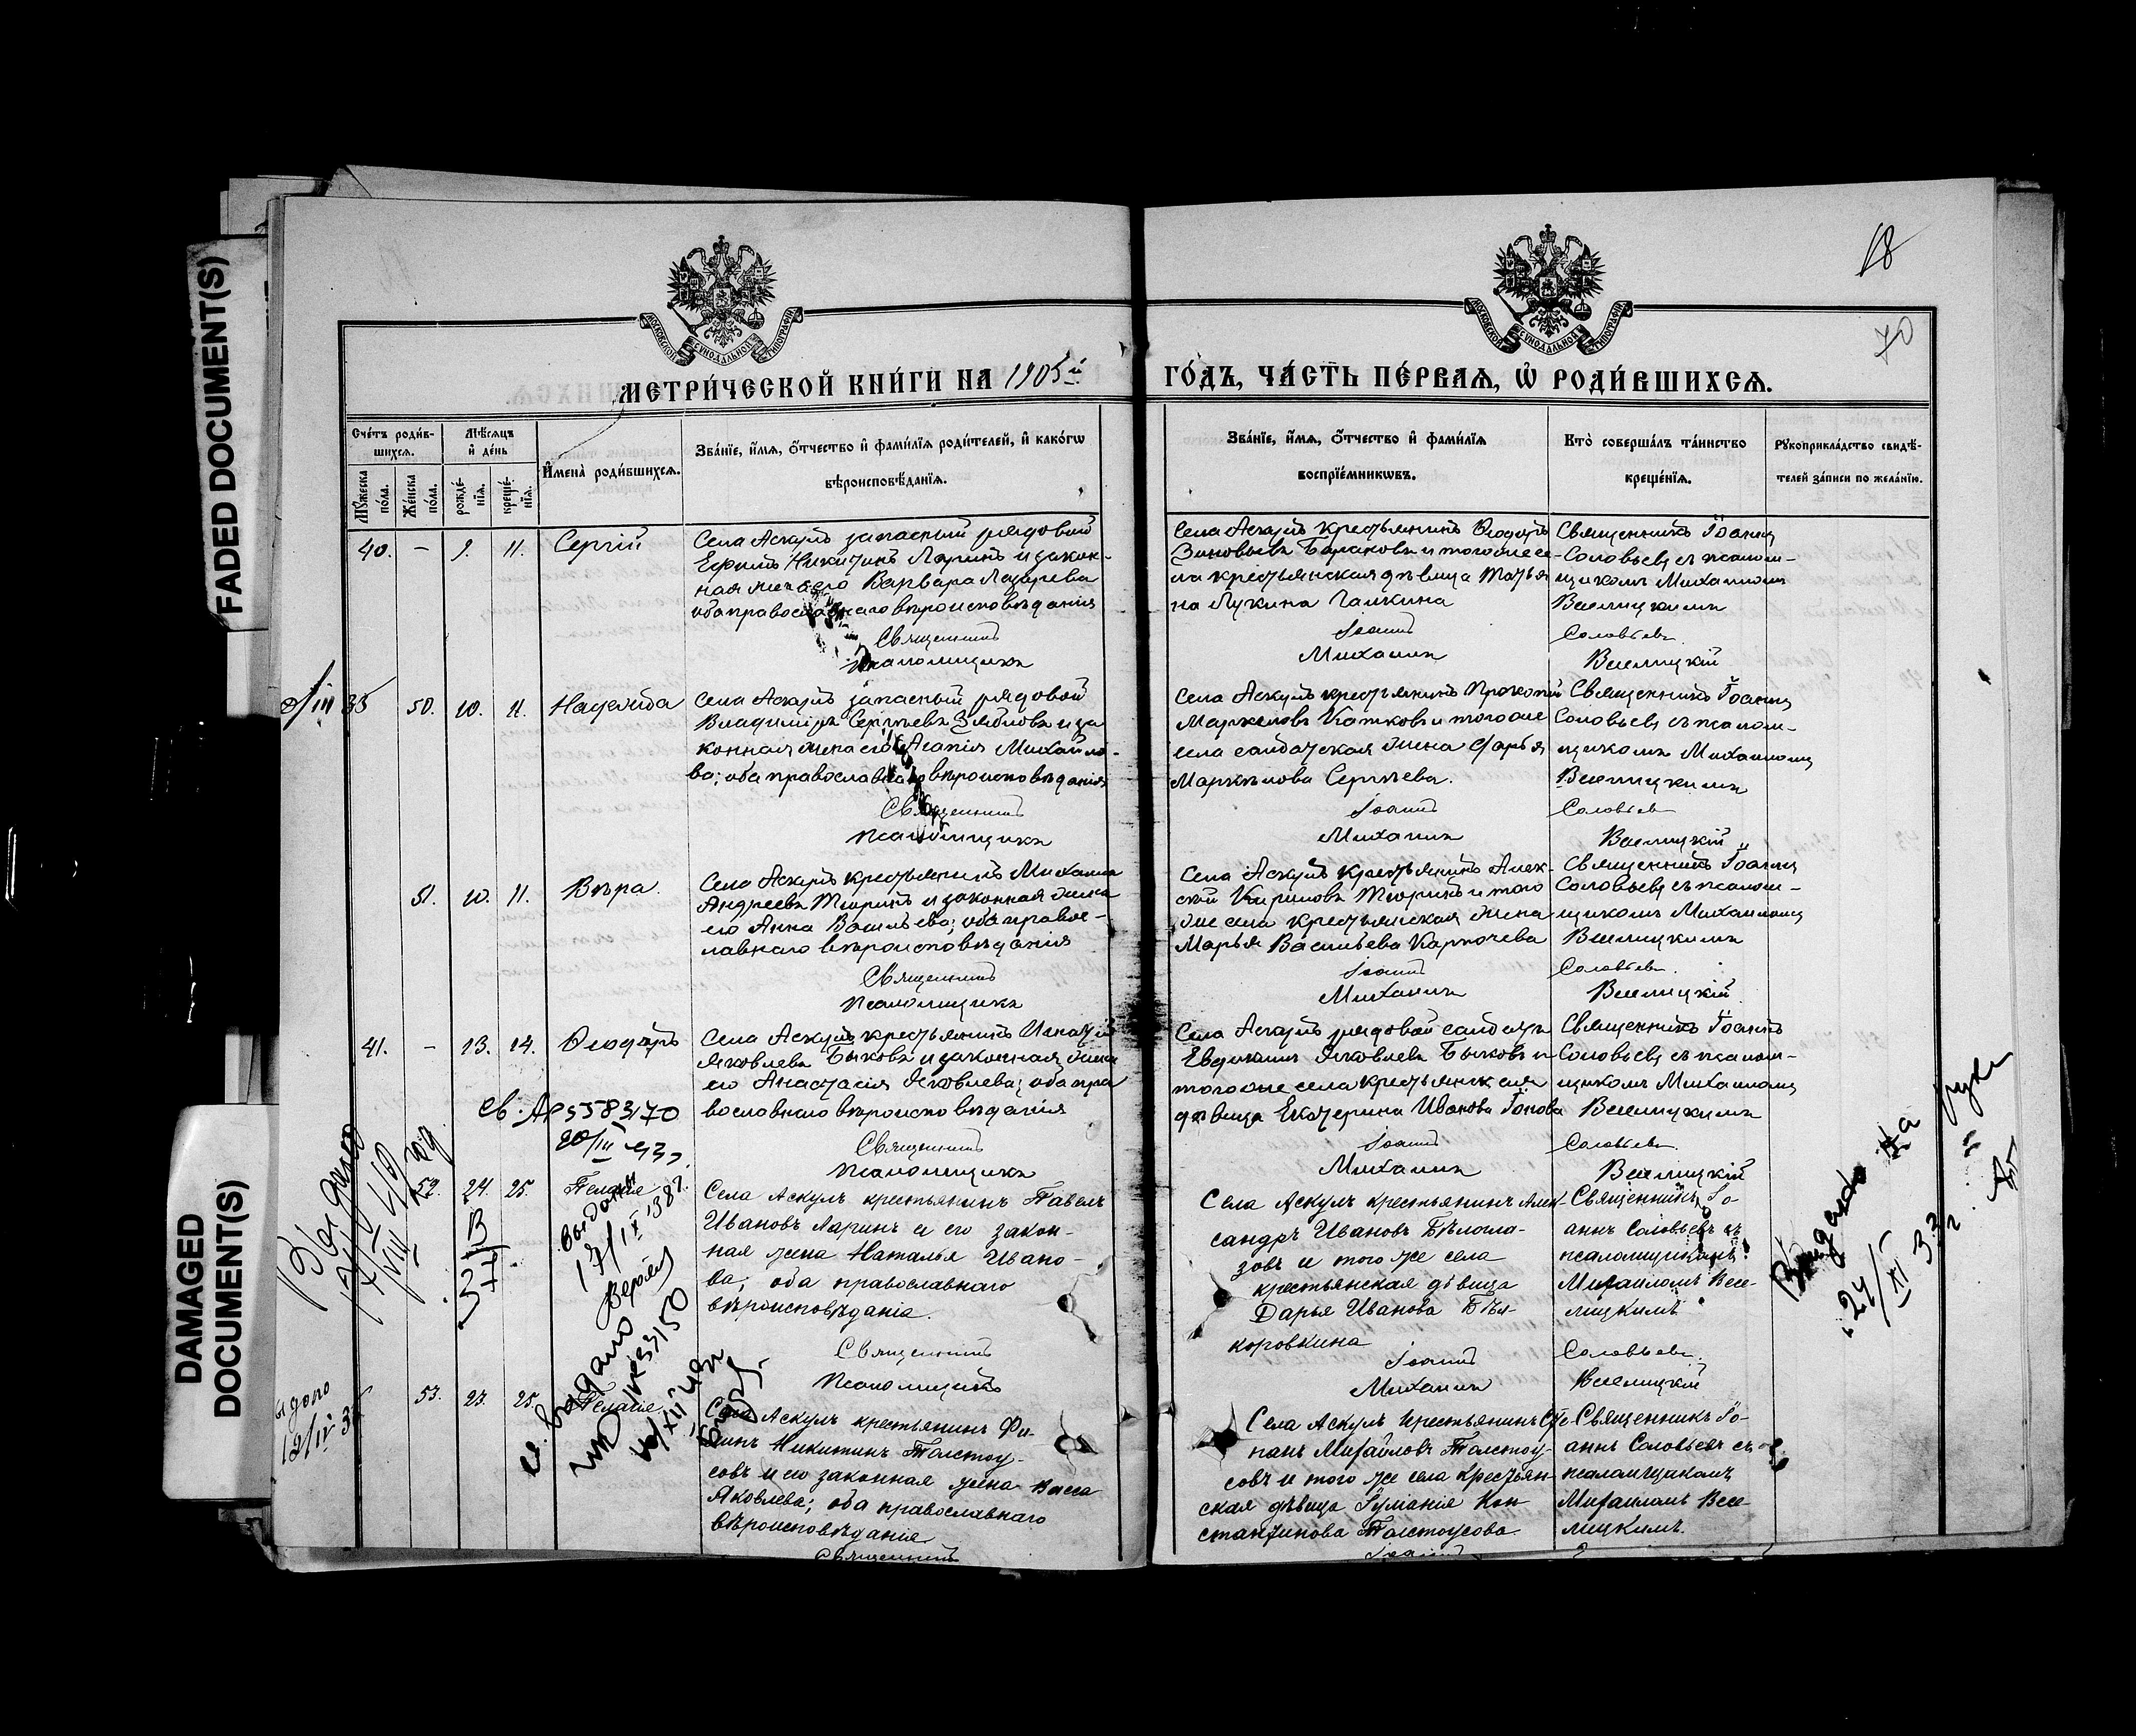 FADED DOCUMENT(S)
DAMAGED
DOCUMENT(S)
18
70
МОСКОВСКОЙ СѴНОДАЛЬНОЙ ТИПОГРАФІИ
МОСКОВСКОЙ СѴНОДАЛЬНОЙ ТИПОГРАФІИ
МЕТРИ́ЧЕСКОЙ КНИ́ГИ НА 1905й ГО́ДЪ, ЧА́СТЬ ПЕ́РВАЯ, Ѡ҆ РОДИ́ВШИХСЯ.
Сче́тъ роди́в-
шихся.
Мѣ́сяцъ
и҆ де́нь
Мꙋ́жеска
по́ла.
Же́нска
по́ла.
рожде́-
нїѧ.
креще́-
нїѧ.
И҆мена̀ роди́вшихся.
Зва́нїе, и҆́мѧ, ѻ҆́тчество и҆ фами́лїѧ роди́телей, и҆ како́гѡ
вѣроисповѣ́данїѧ.
Зва́нїе, и҆́мѧ, ѻ҆́тчество и҆ фами́лїѧ
воспрїе́мникѡвъ.
Кто̀ соверша́лъ та́инство
креще́нїѧ.
Рꙋкоприкла́дство свидѣ́-
телей за́писи по жела́нїю.
40. — 9. 11. Сергій
Села Аскулъ запасный рядовой
Ефимъ Никитинъ Ларинъ и закон-
ная жена его Варвара Лазарева
оба православнаго вѣроисповѣданія
Священникъ
Псаломщикъ
Села Аскулъ крестьянинъ Ѳедоръ
Зиновьевъ Балаковъ и того же се-
ла крестьянская дѣвица Татья
на Лукина Галкина
Іоаннъ
Михаилъ
Священникъ Іоаннъ
Соловьевъ съ псалом-
щикомъ Михаиломъ
Веселицкимъ
Соловьевъ.
Веселицкій
50. 10. 11. Надежда
Села Аскулъ запасный рядовой
Владиміръ Сергѣевъ Зябловъ и за
конная жена его Агапія Михайло-
ва; оба православнаго вѣроисповѣданія
Священникъ
Псаломщикъ
Села Аскулъ крестьянинъ Прокопій
Маркеловъ Катковъ и того же
села солдатская жена Дарья
Маркелова Сергѣева.
Іоаннъ
Михаилъ
Священникъ Іоаннъ
Соловьевъ съ псалом-
щикомъ Михаиломъ
Веселицкимъ
Соловьевъ
Веселицкій
51. 10. 11. Вѣра.
Села Аскулъ крестьянинъ Михаилъ
Андреевъ Тюринъ и законная жена
его Анна Васильева; оба правос-
лавнаго вѣроисповѣданія
Священникъ
Псаломщикъ
Села Аскулъ крестьянинъ Алек-
сѣй Кириловъ Тюринъ и того
же села крестьянская жена
Марья Васильева Карпочева
Іоаннъ
Михаилъ
Священникъ Іоаннъ
Соловьевъ съ псалом-
щикомъ Михаиломъ
Веселицкимъ
Соловьевъ.
Веселицкій
41. — 13. 14. Ѳеодоръ
Села Аскулъ крестьянинъ Игнатій
Яковлевъ Быковъ и законная жена
его Анастасія Яковлева; оба пра
вославнаго вѣроисповѣданія
Священникъ
Псаломщикъ
Села Аскулъ рядовой солдатъ
Евдокимъ Яковлевъ Быковъ и
того же села крестьянская
дѣвица Екатерина Иванова Гонова
Іоаннъ
Михаилъ
Священникъ Іоаннъ
Соловьевъ съ псалом-
щикомъ Михаиломъ
Веселицкимъ
Соловьевъ.
Веселицкій
52. 24. 25. Пелагія
Села Аскулъ крестьянинъ Павелъ
Ивановъ Ларинъ и его закон-
ная жена Наталья Ивано-
ва; оба православнаго
вѣроисповѣданія.
Священникъ
Псаломщикъ
Села Аскулъ крестьянинъ Алек-
сандръ Ивановъ Бѣлогла-
зовъ и того же села
крестьянская дѣвица
Дарья Иванова Бѣл-
коровкина
Іоаннъ
Михаилъ
Священникъ Іо-
аннъ Соловьевъ съ
псаломщикомъ
Михаиломъ Весе-
лицкимъ
Соловьевъ.
Веселицкій
53. 23. 25. Пелагія
Села Аскулъ крестьянинъ Фи-
липъ Никитинъ Толстоу-
совъ и его законная жена Васса
Яковлева; оба православнаго
вѣроисповѣданія
Священникъ
Села Аскулъ крестьянинъ Сте-
панъ Михайловъ Толстоу-
совъ и того же села крестьян-
ская дѣвица Іуліанія Кон
стантинова Толстоусова
Іоаннъ
Священникъ Іо-
аннъ Соловьевъ съ
псаломщикомъ
Михаиломъ Весе-
лицкимъ.
Выдано
Выдано на руки
24/XI 33 г.